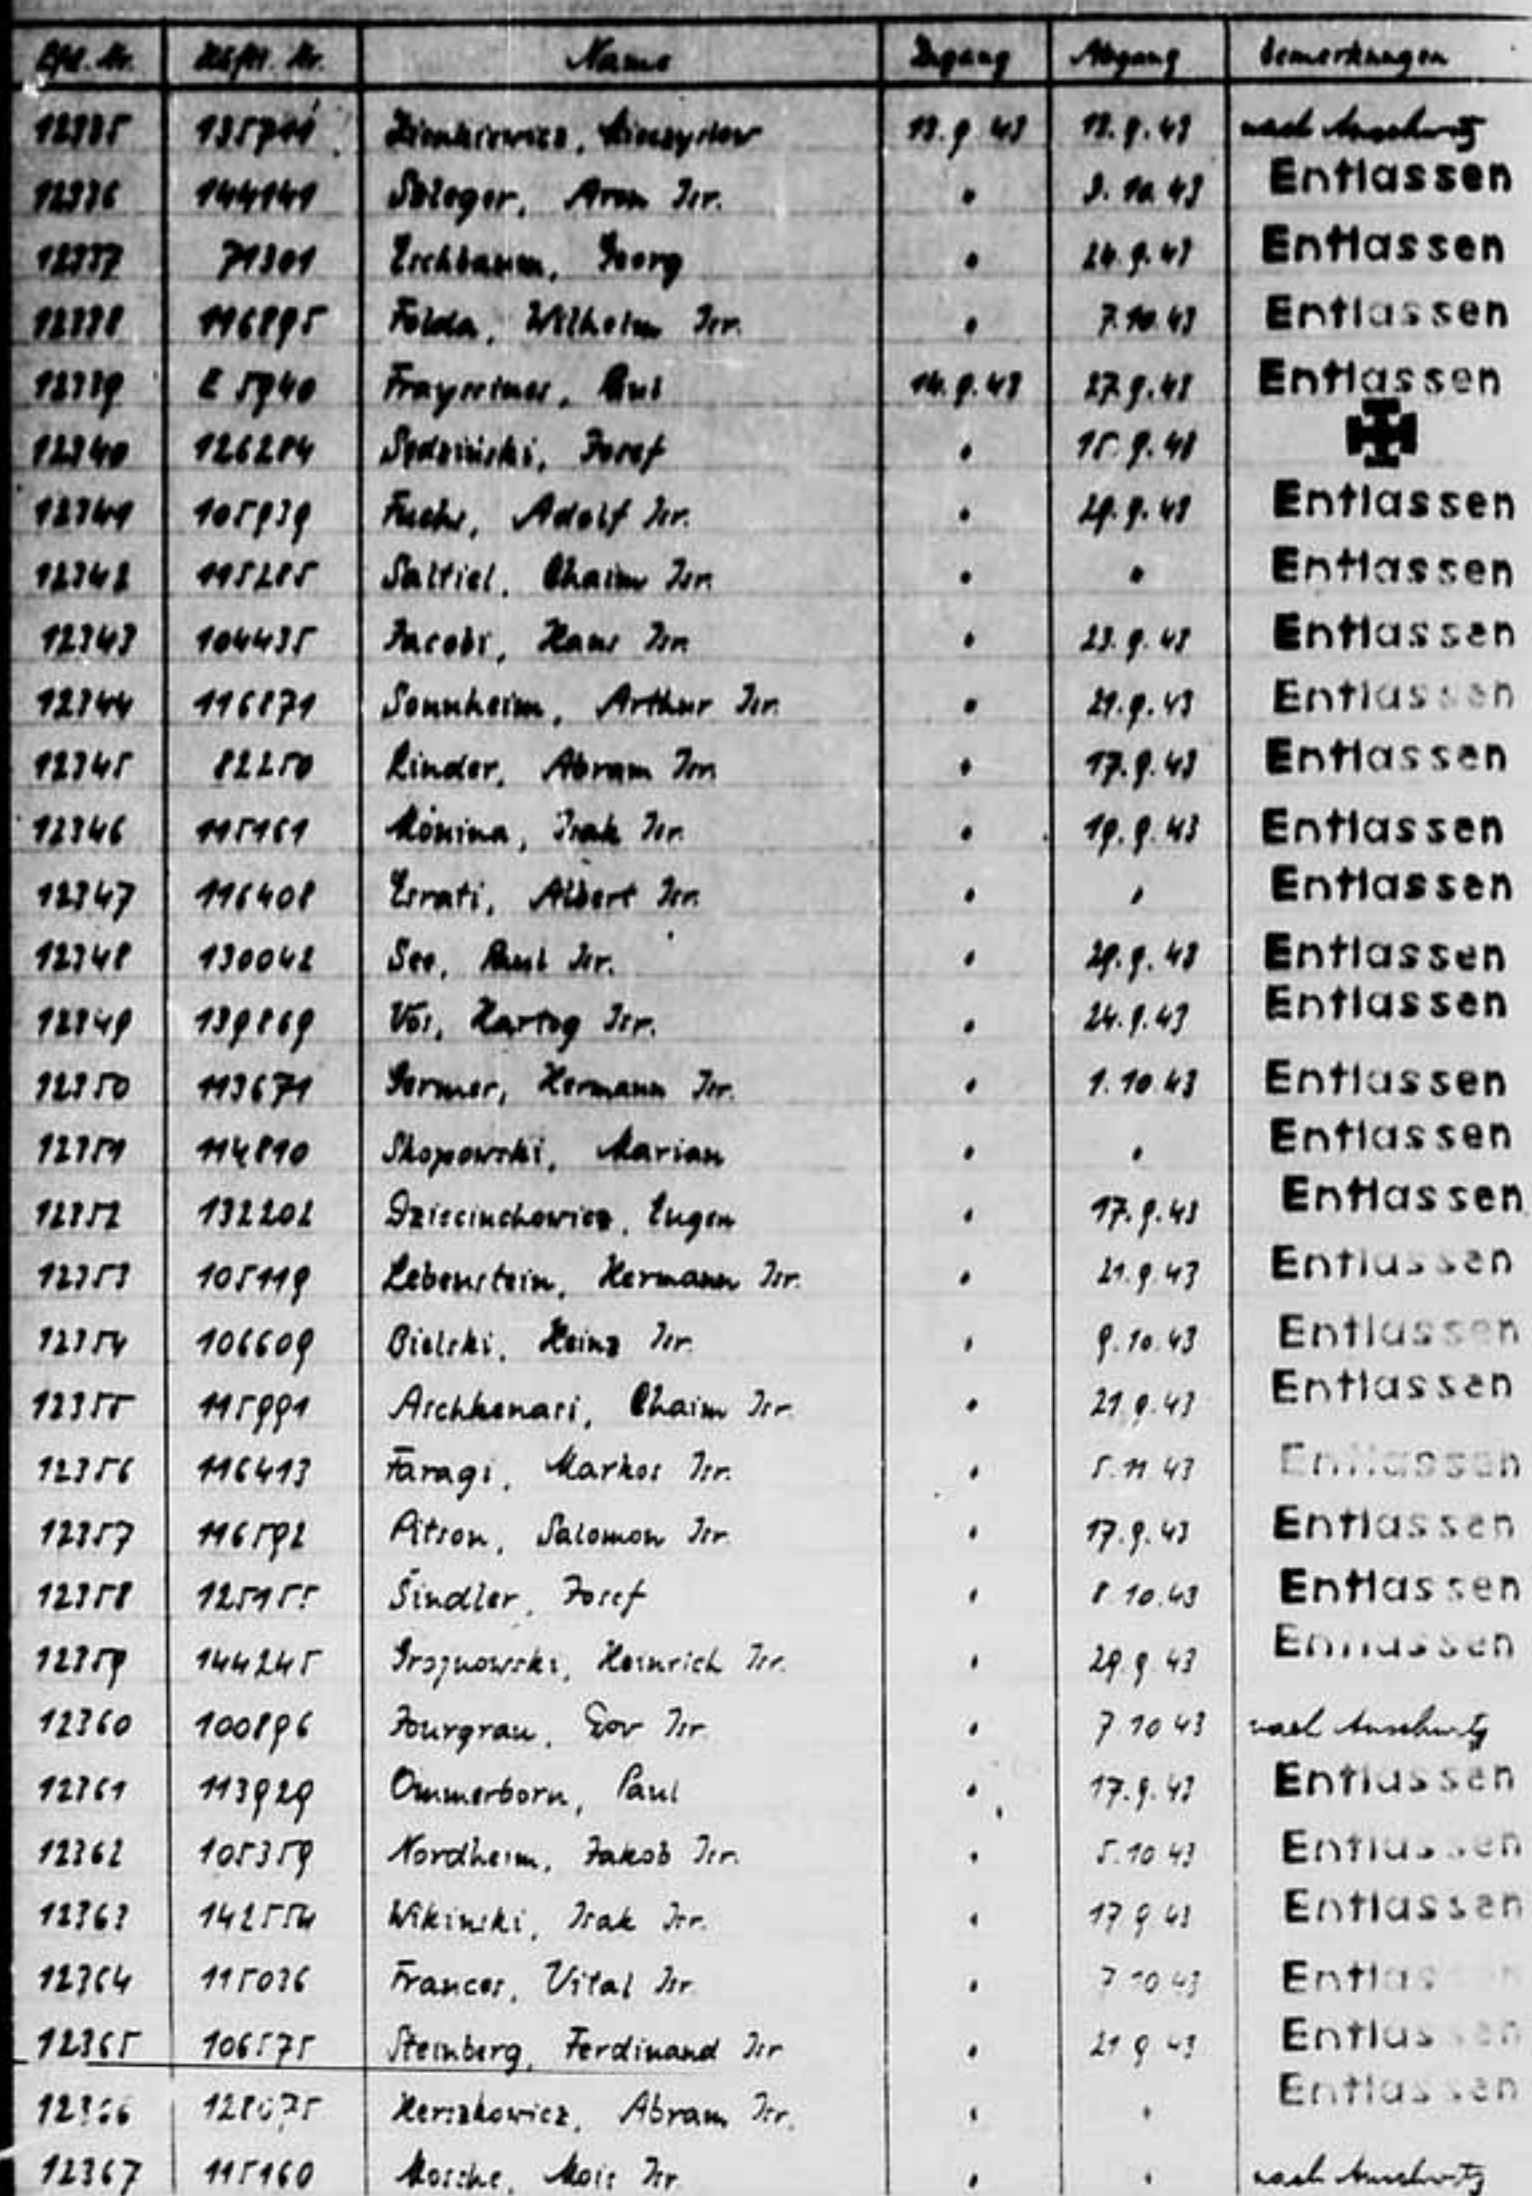 Lfd. Nr. Häftl. Nr. Name Zugang Abgang Bemerkungen
12335 135711 13.9.43 13.9.43 nach Auschwitz
12336 144141 Szleger, Aron Isr. " 3.10.43 Entlassen
12337 71301 Eschbaum, Georg " 24.9.43 Entlassen
12338 116895 Folda, Wilhelm Isr. " 7.10.43 Entlassen
12339 E 5940 14.9.43 27.9.43 Entlassen
12340 126284 Sędziński, Josef " 15.9.43
12341 105939 Fuchs, Adolf Isr. " 29.9.43 Entlassen
12342 115285 Saltiel, Chaim Isr. " " Entlassen
12343 104435 Jacobi, Hans Isr. " 23.9.43 Entlassen
12344 116871 Sonnheim, Arthur Isr. " 21.9.43 Entlassen
12345 82250 Rinder, Abram Isr. " 17.9.43 Entlassen
12346 115161 Mönina, Isak Isr. " 19.9.43 Entlassen
12347 116408 Esrati, Albert Isr. " " Entlassen
12348 130042 See, Paul Isr. " 29.9.43 Entlassen
12349 139869 Vos, Hartog Isr. " 24.9.43 Entlassen
12350 113671 Germer, Hermann Isr. " 1.10.43 Entlassen
12351 114810 Skopowski, Marian " " Entlassen
12352 132202 Dziecinchowicz, Eugen " 17.9.43 Entlassen
12353 105119 Lebenstein, Hermann Isr. " 21.9.43 Entlassen
12354 106609 Bielski, Heinz Isr. " 9.10.43 Entlassen
12355 115991 Aschkenasi, Chaim Isr. " 21.9.43 Entlassen
12356 116413 Faragi, Markos Isr. " 5.11.43 Entlassen
12357 116592 Pitson, Salomon Isr. " 17.9.43 Entlassen
12358 125155 Šindler, Josef " 8.10.43 Entlassen
12359 144245 Grojnowski, Heinrich Isr. " 29.9.43 Entlassen
12360 100896 Fourgrau, Dov Isr. " 7.10.43 nach Auschwitz
12361 113929 Ommerborn, Paul " 17.9.43 Entlassen
12362 105359 Nordheim, Jakob Isr. " 5.10.43 Entlassen
12363 142554 Wikinski, Isak Isr. " 17.9.43 Entlassen
12364 115036 Frances, Vital Isr. " 7.10.43 Entlassen
12365 106575 Steinberg, Ferdinand Isr. " 21.9.43 Entlassen
12366 128075 Herszkowicz, Abram Isr. " " Entlassen
12367 115160 Mosche, Mois Isr. " " nach Auschwitz